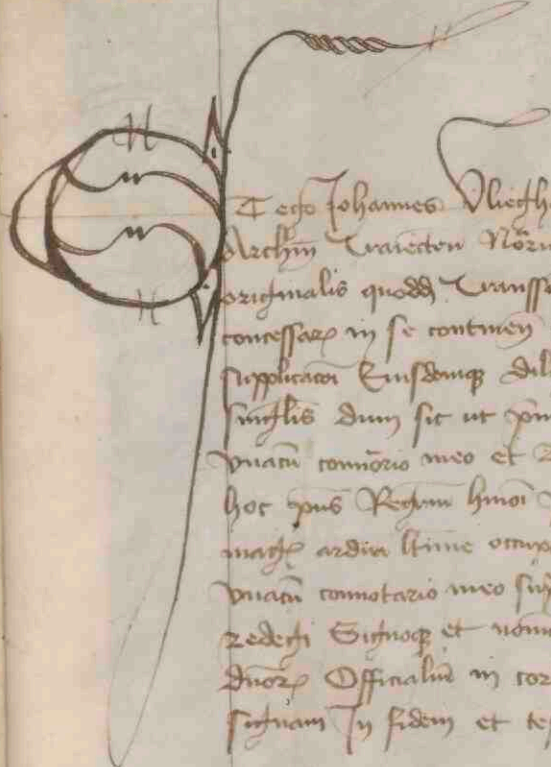 Et ego Johannes Vliegh
Archin Traiecten Nori
originalis quodd Transs
concessar in se continen
supplicacoi Eiusdemq dil
singlis dum sic ut pm
vnacu connorio meo et
hoc pns Regm hmoi
magr ardua ltime occup
vnacu connotario meo sup
redegi Signoq et nomi
duor Officialiu in cor
signam In fidem et tes